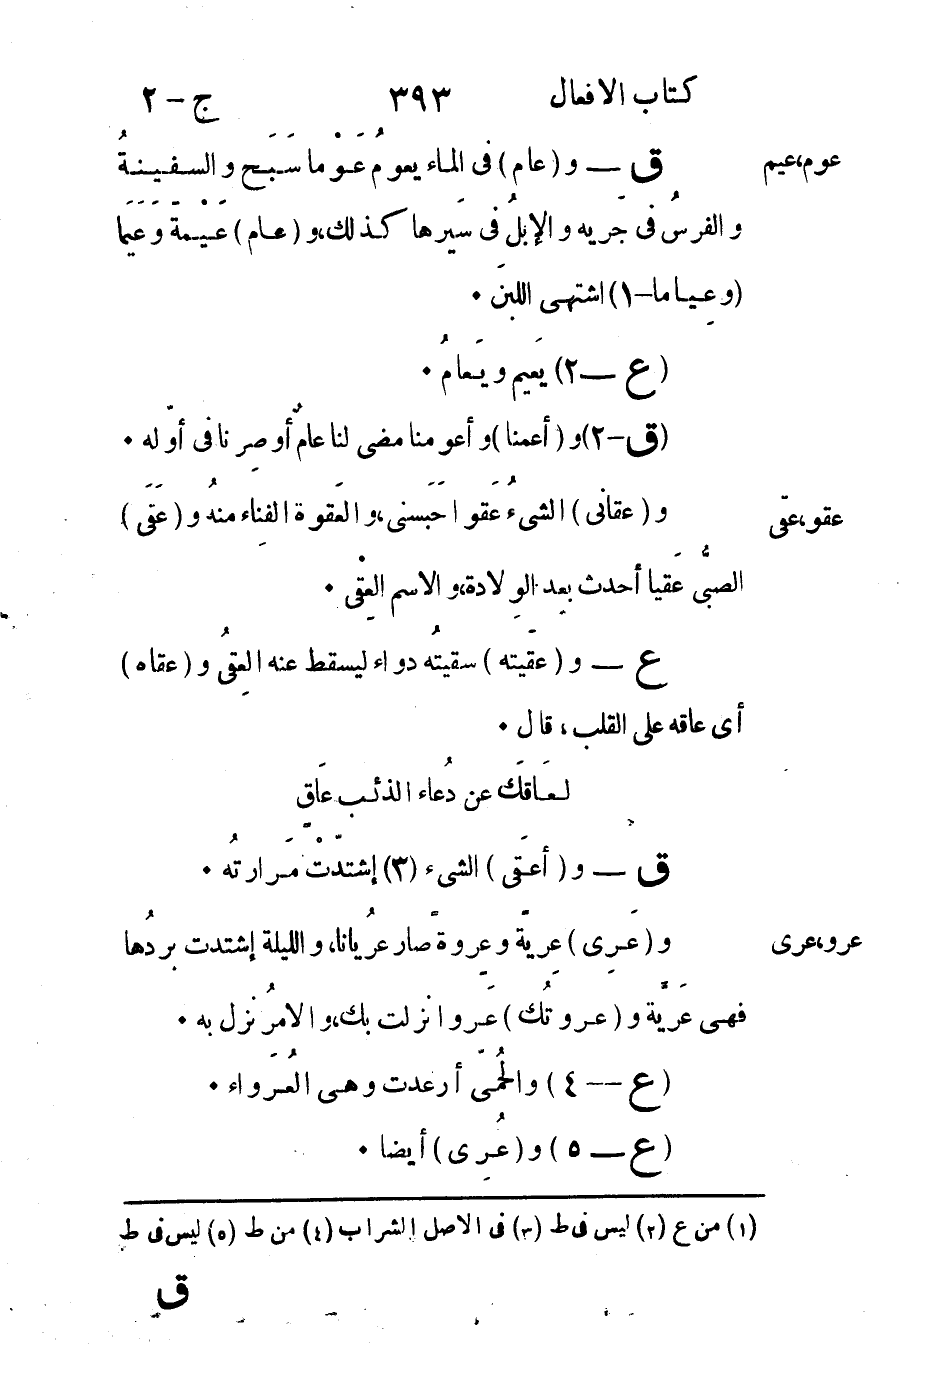 كتاب الافعال ٣٩٣ ج - ٢
عوم،عيم ق — و (عام) فى الماء يعومُ عَوْما سَبَح و السفينةُ
و الفرسُ فى جَريه و الإبلُ فى سَيرها كذلك،و (عام) عَيْمَةً و عَيَما
(و عِياما–١) اشتهى اللبنَ ٠
(ع — ٢) يَعيم و يَعامُ ٠
(ق-٢)و (أعمنا)و أعو منا مضى لنا عامٌ أو صِرنا فى أوّله ٠
عقو،عقى و (عقانى) الشىءُ عَقوا حَبَسنى،و العَقوة الفِناء منهُ و (عَقَى)
الصبىُّ عَقيا أحدث بعد الوِلادة،و الاسم العِقْى ٠
ع — و (عقّيته) سقيتُه دواء ليسقط عنه العِقىُ و (عقاه)
أى عاقه على القلب، قال ٠
لعَاقَكَ عن دُعاء الذئب عَاقٍ
ق — و (أعقَى) الشىء (٣) إشتدّتْ مَرارتُه ٠
عرو،عرى و (عَرِى) عِريةً و عِروةً صار عُريانا، و الليلة إشتدت بردُها
فهى عَرِيَّة و (عروتُك) عَروا نزلت بك،و الامرُ نزل به ٠
(ع -- ٤) والحُمّى أرعدت وهى العُرَواء ٠
(ع — ٥) و (عُرِى) أيضا ٠
(١) من ع (٢) ليس فى ط (٣) فى الاصل الشراب (٤) من ط (٥) ليس فى ط
ق